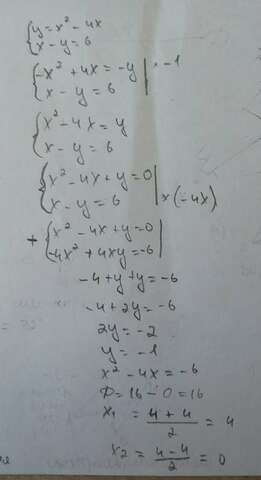 {y = x² - 4x
x - y = 6
{-x² + 4x = -y | · -1
x - y = 6
{x² - 4x = y
x - y = 6
{x² - 4x + y = 0
x - y = 6 | × (-4x)
+ {x² - 4x + y = 0
-4x² + 4xy = -6 |
-4 + y + y = -6
-4 + 2y = -6
2y = -2
y = -1
x² - 4x = -6
D = 16 - 0 = 16
x₁ = (4 + 4)/2 = 4
x₂ = (4 - 4)/2 = 0